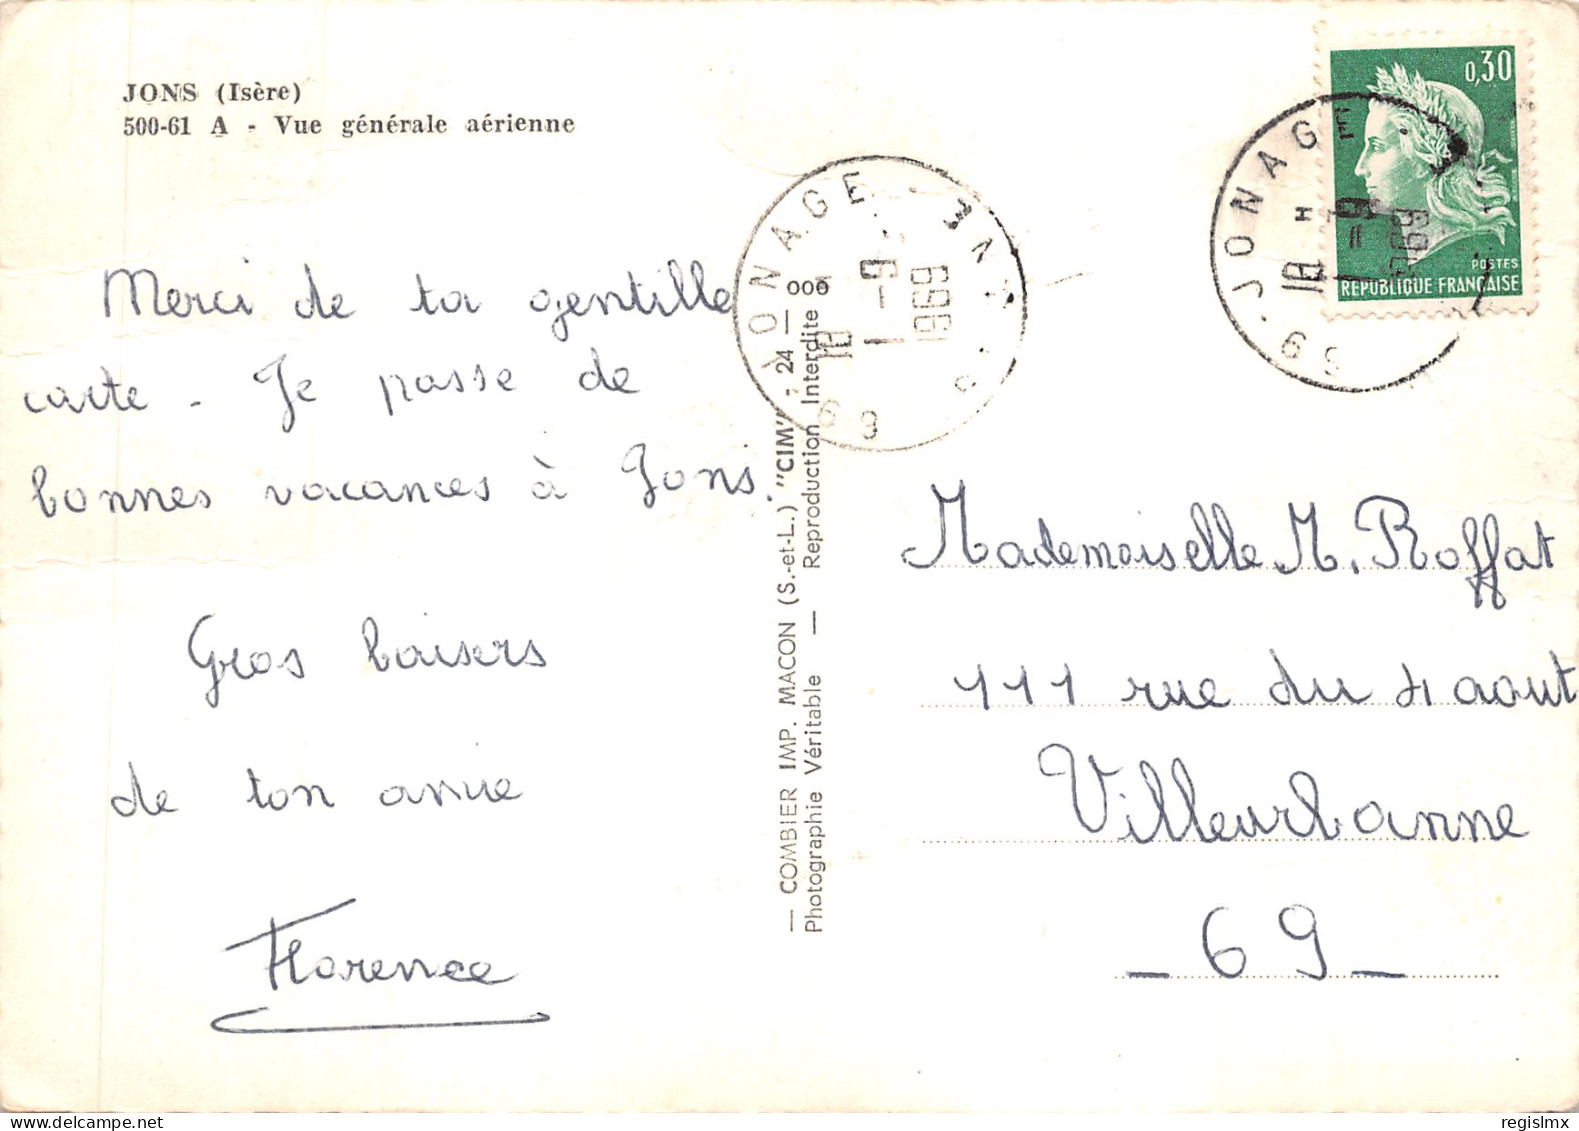 JONS (Isère)
500-61 A - Vue générale aérienne
Merci de ta gentille
carte - Je passe de
bonnes vacances à Jons.
Gros baisers
de ton amie
Florence
— COMBIER IMP. MACON (S.-et-L.) "CIM"
Photographie Véritable — Reproduction Interdite
JONAGE
69
18
1969
0,30
POSTES
RÉPUBLIQUE FRANÇAISE
JONAGE
69
18 H
Mademoiselle M. Roffat
111 rue du 4 aout
Villeurbanne
- 69 -
regislmx